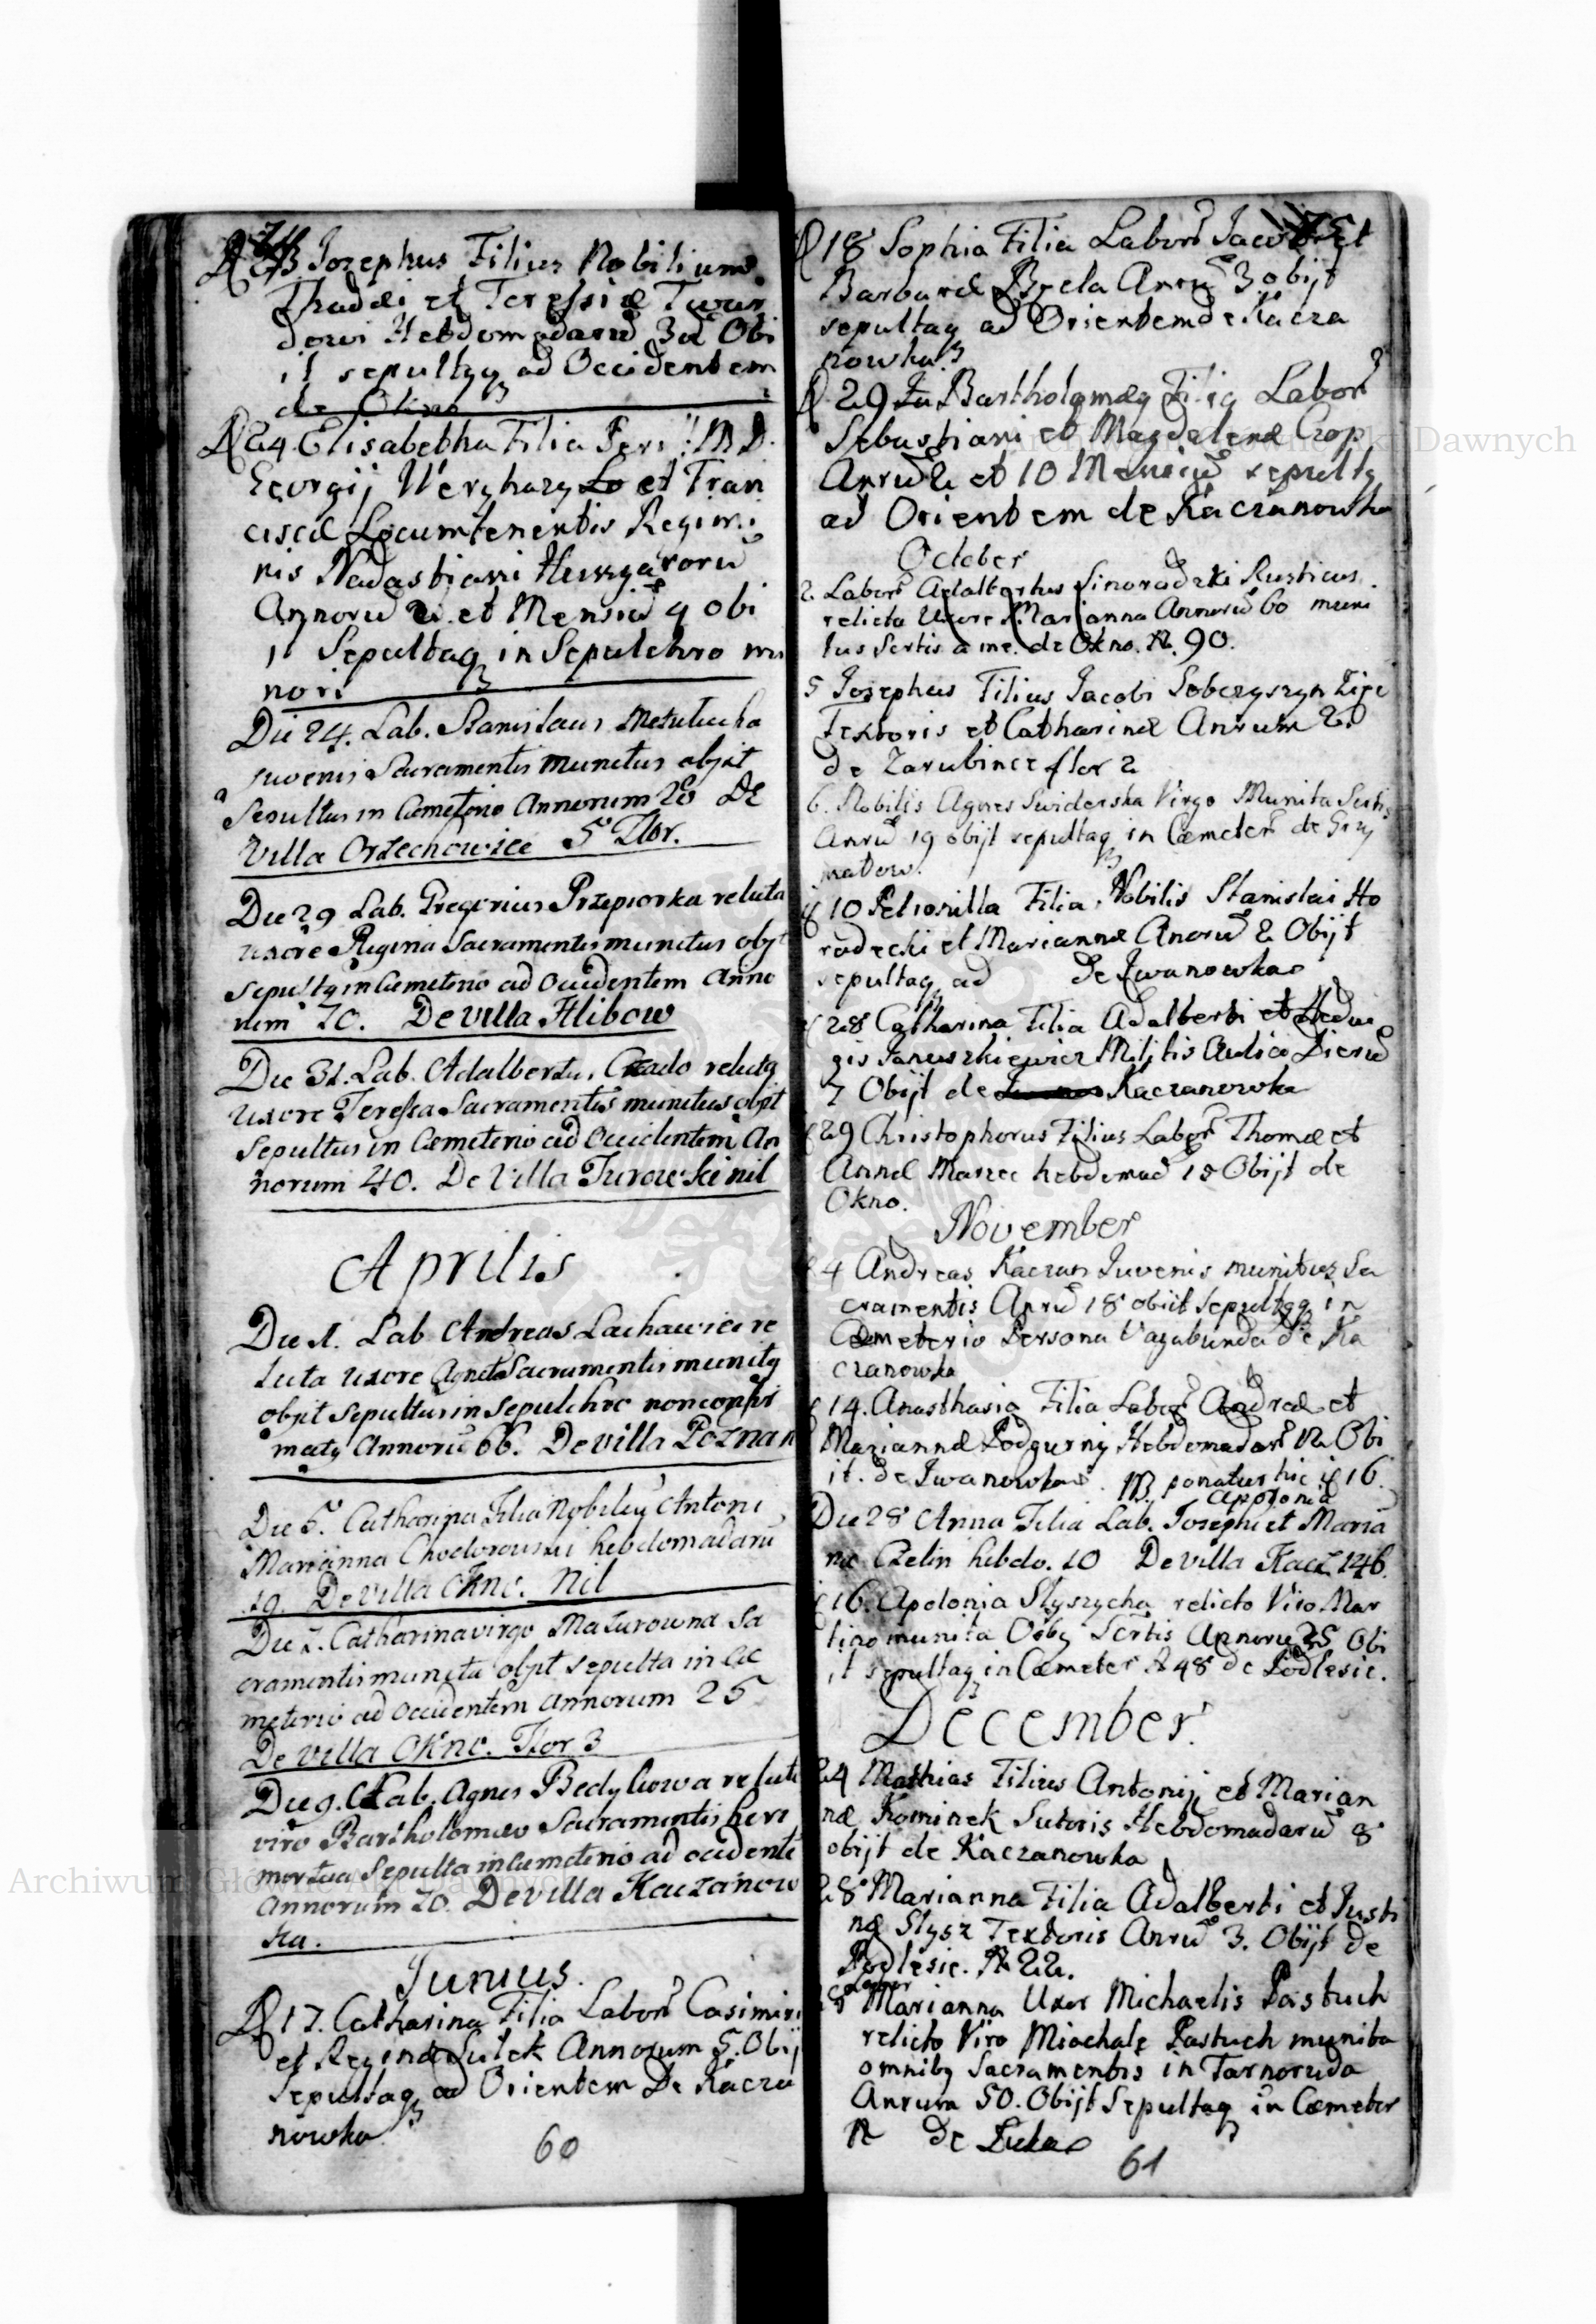 D 23 Josephus Filius Nobilium
Thadæi et Teressiæ Twar
dowi Hebdomadarū 3 Obi
it sepultqq ad Occidentem
de Okno
D 24 Elisabetha Filia M. D.
Georgij et Fran
ciscæ Locumtenentis Regimi
nis Nadastiani Hungarorū
Annorū 2 et Mensiū 9 obi
it Sepultaq in Sepulchro mi
nori
Die 24. Lab. Stanislaus
Juvenis Sacramentis munitus obijt
Sepultus in Cæmeterio Annorum 20 De
Villa Orzechowice 5 Flor.
Die 29 Lab. Gregorius Przepiorka relicta
uxore Regina Sacramentis munitus objt
Sepultq in Cæmeterio ad occidentem Anno
rum 70. De villa Hlibow
Die 31. Lab. Adalbertus Czado relicta
uxore Teressa Sacramentis munitus objit
Sepultus in Cæmeterio ad occidentem An
norum 40. De Villa Turowski nil
Aprilis
Die 1. Lab. Andreas Lachawiec re
licta uxore Agneta Sacramentis munitq
objit Sepultus in Sepulchro
Annorū 66. De villa Poznan
Die 5. Catharina Filia Nobiliū Antoni
Marianna Chodorowski hebdomadarū
19. De Villa Okno. nil
Die 7. Catharina virgo Mazurowna Sa
cramentis munita objit sepulta in Cæ
meterio ad Occidentem Annorum 25
De Villa Okno. Flor 3
Die 9. Lab. Agnes Bedylowa relicto
viro Bartholomæo Sacramentis
mortua Sepulta in Cæmeterio ad occidentē
Annorum 70. De villa Kaczanow
ka.
Junius.
D 17. Catharina Filia Labor Casimiri
et Reginæ Lulek Annorum 5. Obij
Sepultaq ad Orientem De Kacza
nowka
60
D 18 Sophia Filia Labor Jacobi Et
Barbaræ Bzela Anrū 3 obijt
sepultaq ad Orientem de Kacza
nowka
D 29 Bartholomæq Filiq Labor
Sebastiani et Magdalenæ Czop
Anrū 2 et 10 Mensiū sepultq
ad Orientem de Kaczanowka
October
2 Labor Adalbertus Sinorodzki Rusticus
relicta Uxore Marianna Annorū 60 muni
tus Scrtis a me. de Okno. N. 90.
5 Josephus Filius Jacobi Sobczyszyn
Textoris et Catharinæ Anrum 2.
de Zarubince flor 2
6. Nobilis Agnes Swiderska Virgo Munita Scrtis
Anrū 19 obijt sepultaq in Cæmeter de Grzy
matow.
10 Petronilla Filia Nobilis Stanislai Ho
rodecki et Mariannæ Anorū 2 Obijt
sepultaq ad De Iwanowka
28 Catharina Filia Adalberti et Hedwi
gis Januszkiewicz Militis Dierū
7 Obijt de Kaczanowka
29 Christophorus Filius Labor Thomæ et
Annæ Marzec hebdomad 18 Obijt de
Okno.
November
4 Andreas Kaczan Juvenis munitus Sa
cramentis Anrū 18 obiit Sepultqq in
Cæmeterio Persona Vagabunda De Ka
czanowka
14. Anasthasia Filia Labor Andreæ et
Mariannæ Podgurny Hebdomadar 12 Obi
it. de Iwanowka. NB. ponatur hic 16
Apolonia
Die 28 Anna Filia Lab. Josephi et Maria
næ Czelin hebdo. 10 De villa Kacz 146.
16. Apolonia Slyszycha relicto Viro Mar
tino munita Oibg Scrtis Annorū 25 Obi
it sepultaq in Cæmeter N 48 de Podlesie.
December
24 Mathias Filius Antonij et Marian
næ Kominek Sutoris Hebdomadarū 8
obijt de Kaczanowka
28 Marianna Filia Adalberti et Justi
næ Slysz Textoris Anrū 3. Obijt de
Podlesie. N 22.
Labor
Marianna Uxor Michaelis Pastuch
relicto Viro Miochale Pastuch munita
omnibq Sacramentis in Tarnoruda
Anrum 50. Obijt Sepultaq in Cæmeter
N de Luka
61